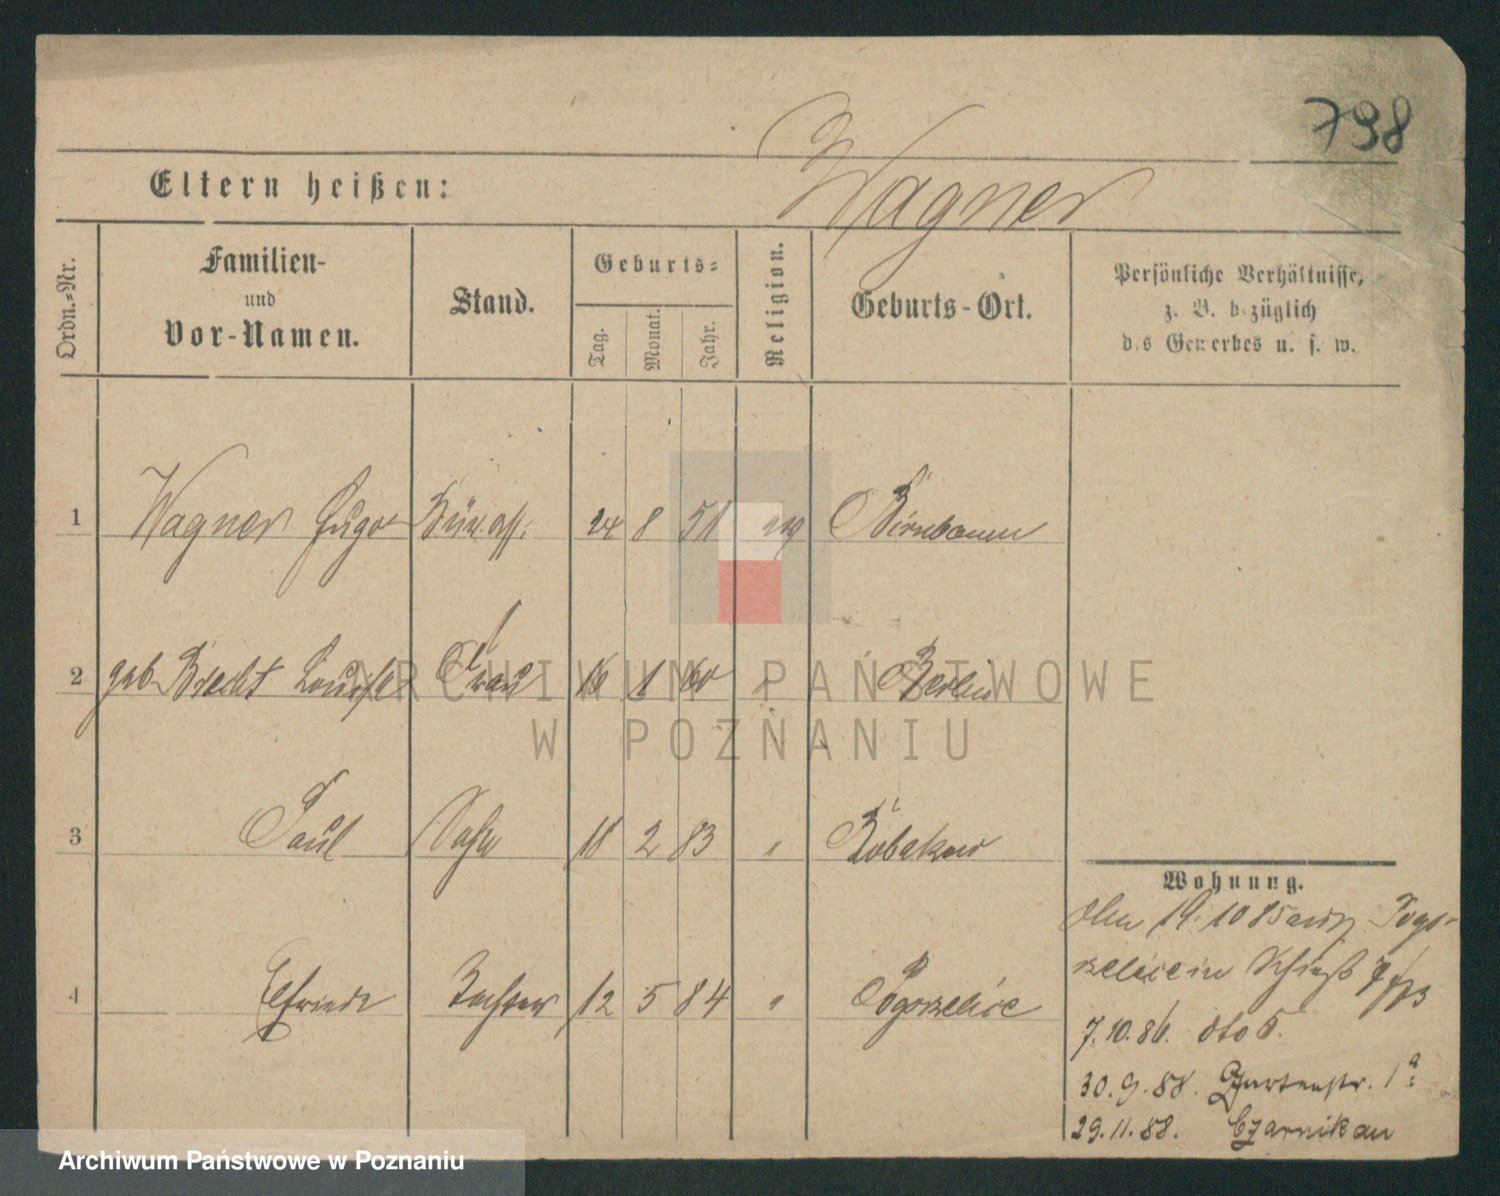 798
Eltern heißen: Wagner
Ordn.-Nr.
Familien-
und
Vor-Namen.
Stand.
Geburts-
Tag.
Monat.
Jahr.
Religion.
Geburts-Ort.
Persönliche Verhältnisse,
z. B. bezüglich
des Gewerbes u. s. w.
1 Wagner Hugo 24 8 51 Birnbaum
2 geb Brecht Frau 16 1 60 " Berlin
3 Paul Sohn 18 2 83 " Bobakowo
4 Elfriede Tochter 12 5 84 " Pogorzelice
Wohnung.
19.10 85 aus Pogor-
zelice in
7.10.86. dto 5.
30.9.88. Gartenstr. 1a
29.11.88. Czarnikau
ARCHIWUM PAŃSTWOWE
W POZNANIU
Archiwum Państwowe w Poznaniu